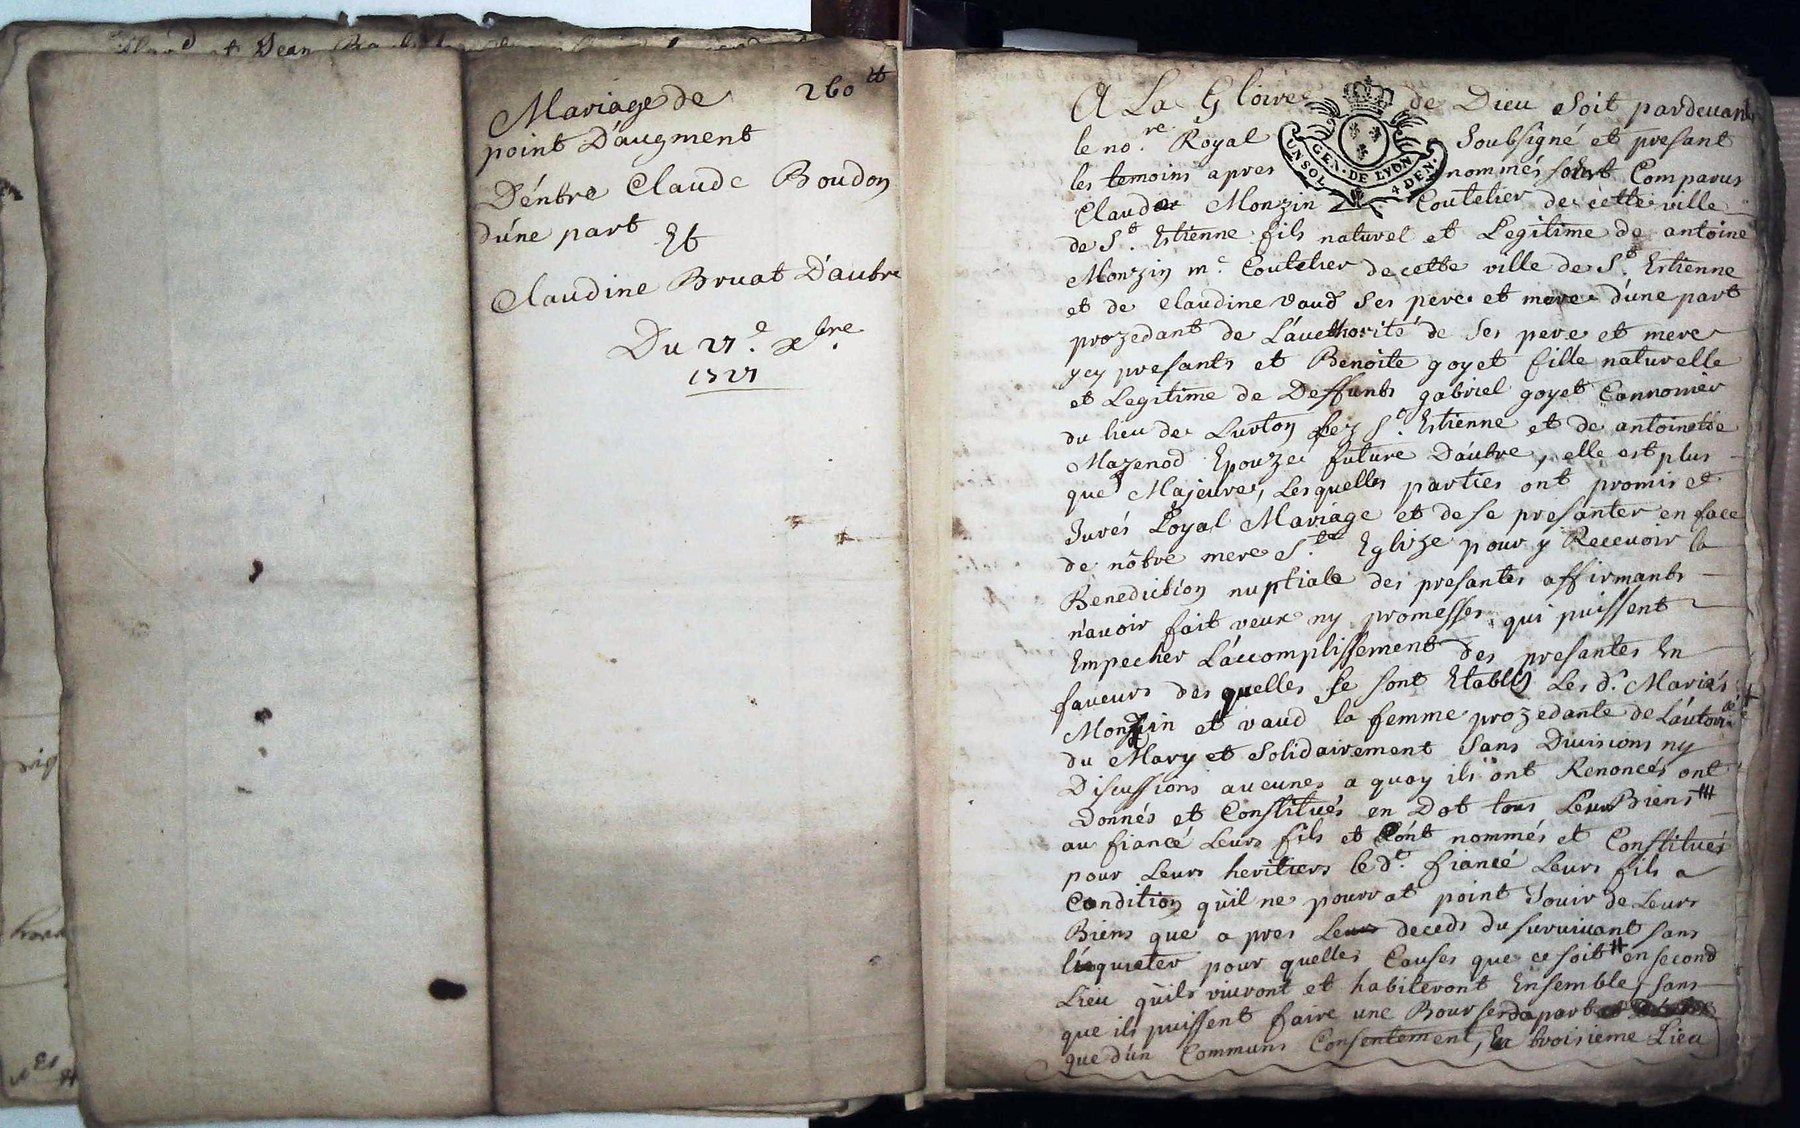 et Jean
Mariage de 260 ₶
point D'augment
D'éntre Claude Boudon
d'úne part
Et
Claudine Bruat D'autre
Du 27.e xbre
1727
A La Gloire de Dieu soit pardevant
le no.re Royal soubsigné et presant
les temoins apres nommés sont Comparus
Claude Monzin Coutelier de cette ville
de S.t Estienne fils naturel et Legitime de antoine
Monzin m.e Coutelier de cette ville de S.t Estienne
et de Claudine vaud ses pere et mere d'úne part
prozedant de L'aucthorité de ses pere et mere
ycy presants et Benoite goyet fille naturelle
et Legitime de Deffunts gabriel goyet Cannonier
du lieu de Lurton lez S.t Estienne et de antoinette
Mazenod Epouzeé future D'áutre, elle est plus
que Majeure, Lesquelles parties ont promis et
Jurés Loyal Mariage et de se presanter en face
de nôtre mere S.te Eglize pour y Recevoir la
Benediction nuptiale des presantes affirmants
n'avoir fait veux ny promesses qui puissent
Empecher L'accomplissement des presantes En
faveurs des quelles se sont Etablis Les d.s Mariés
Monzin et vaud la femme prozedante de L'áutori.té
du Mary et Solidairement sans Divisions ny
Discussions aucunes a quoy ils ont Renoncés ont
Donnés et Constitués en Dot tous Leurs Biens
au fiancé Leurs fils et L'ónt nommés et Constitués
pour Leurs heritiers le d.t fiancé Leurs fils a
Condition qu'il ne pourrat point Jouir de Leurs
Biens que a pres Leurs deceds du survivant sans
l'inquieter pour quelles Causes que ce soit en second
Lieu qu'ils vivront et habiteront Ensemble, sans
que ils puissent faire une Bourse a part
que d'ún Communs Consentement, En troisieme Lieu
UN SOL GEN. DE LYON 4 DEN.